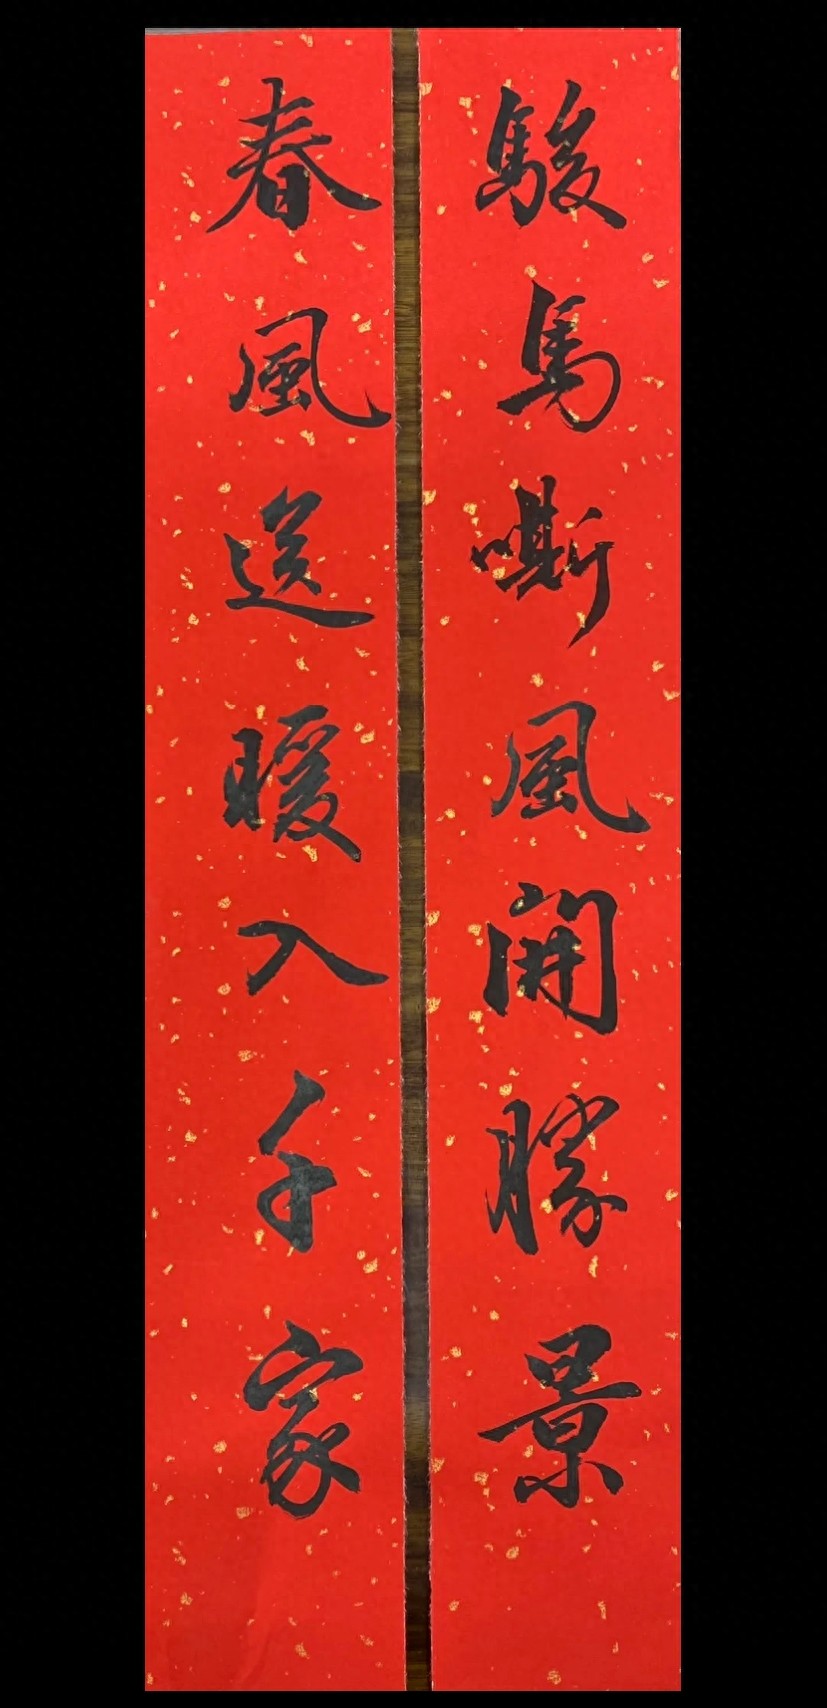 駿馬嘶風開勝景
春風送暖入千家